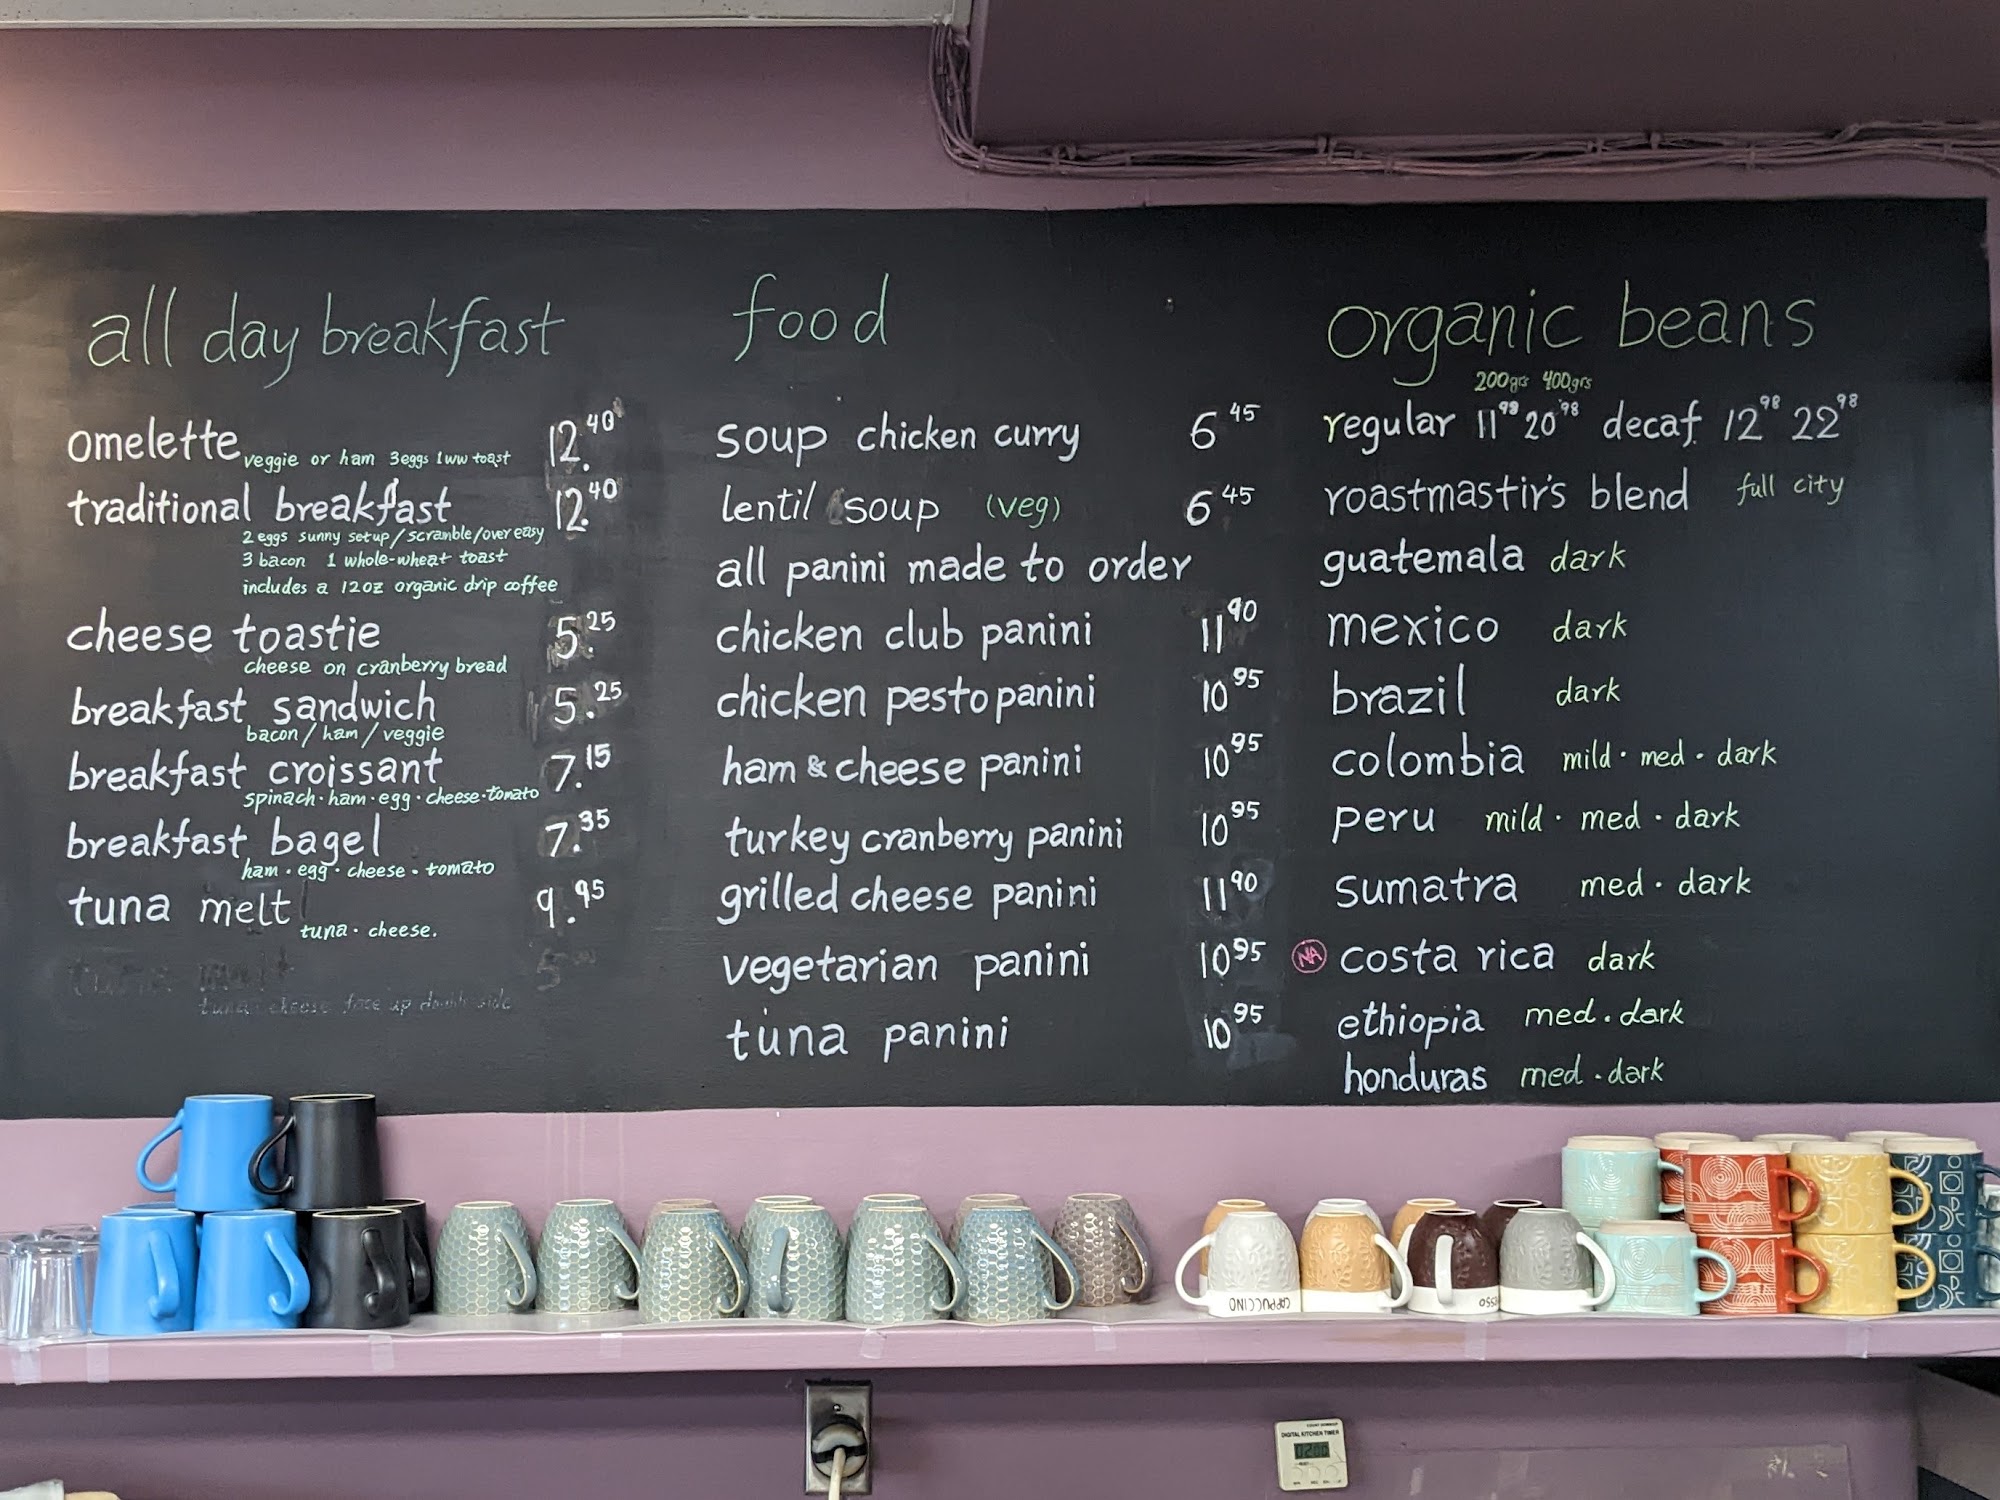 all day breakfast
omelette 12.40
veggie or ham 3eggs 1ww toast
traditional breakfast 12.40
2 eggs sunny setup/scramble/over easy
3 bacon 1 whole-wheat toast
includes a 12oz organic drip coffee
cheese toastie 5.25
cheese on cranberry bread
breakfast sandwich 5.25
bacon/ham/veggie
breakfast croissant 7.15
spinach·ham·egg·cheese·tomato
breakfast bagel 7.35
ham·egg·cheese·tomato
tuna melt 9.95
tuna·cheese.
tuna melt 5
tuna·cheese face up double side
food
soup chicken curry 6 45
lentil soup (veg) 6 45
all panini made to order
chicken club panini 11 90
chicken pesto panini 10 95
ham & cheese panini 10 95
turkey cranberry panini 10 95
grilled cheese panini 11 90
vegetarian panini 10 95
tuna panini 10 95
organic beans
200grs 400grs
regular 11 98 20 98 decaf 12 98 22 98
roastmastir's blend full city
guatemala dark
mexico dark
brazil dark
colombia mild·med·dark
peru mild·med·dark
sumatra med·dark
NA costa rica dark
ethiopia med·dark
honduras med·dark
CAPPUCCINO
DIGITAL KITCHEN TIMER